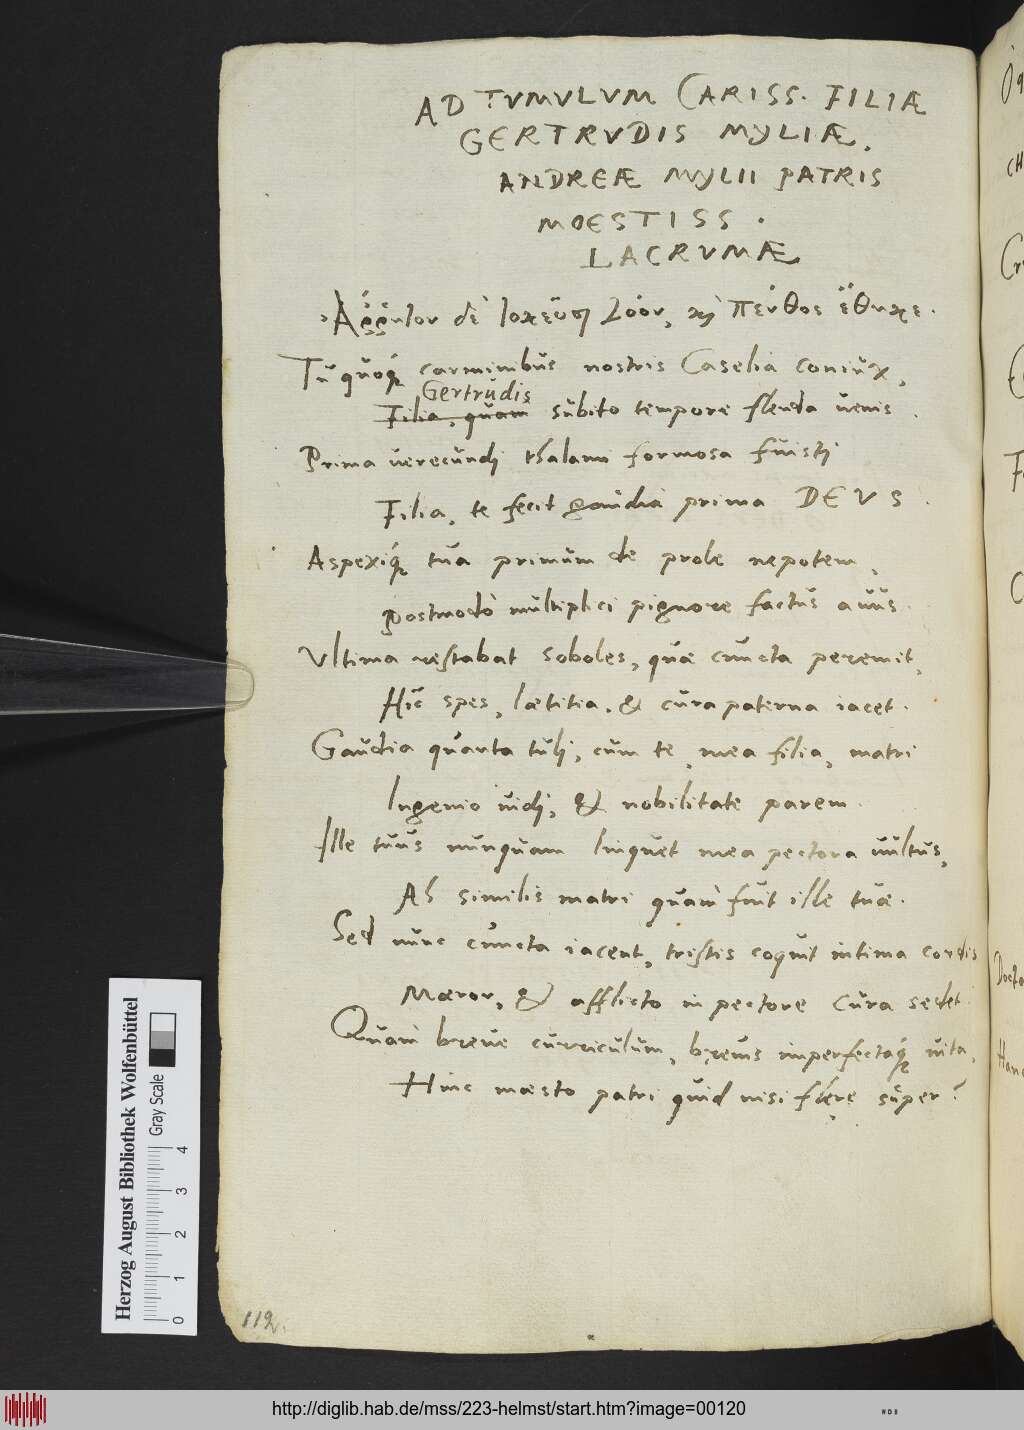 AD TVMVLVM CARISS. FILIÆ
GERTRVDIS MYLIÆ.
ANDREÆ MYLII PATRIS
MOESTISS.
LACRVMÆ
δὲ ζόον, πένθος ἔθηκε.
Tu quoq́ꝫ carminibus nostris Caselia coniux,
Gertrudis
Filia, quam subito tempore flenda uenis.
Prima uerecundi thalami formosa fuisti
Filia, te fecit gaudia prima DEVS.
Aspexiq́ꝫ tua primum de prole nepotem,
Postmodò multiplici pignore factus auus.
Vltima restabat soboles, quæ cuncta peremit,
Hîc spes, lætitia, & cura paterna iacet.
Gaudia quanta tuli, cum te, mea filia, matri
Ingenio uidi, & nobilitate parem.
Ille tuus nunquam linquet mea pectora uultus,
Ah similis matri quàm fuit ille tuæ.
Sed nunc cuncta iacent, tristis coquit intima cordis
Mæror, & afflicto in pectore cura sedet.
Quàm breue curriculum, breuis imperfectaq́ꝫ uita,
Hinc mæsto patri quid nisi flere super?
112.
Herzog August Bibliothek Wolfenbüttel
Gray Scale
0 1 2 3 4
http://diglib.hab.de/mss/223-helmst/start.htm?image=00120